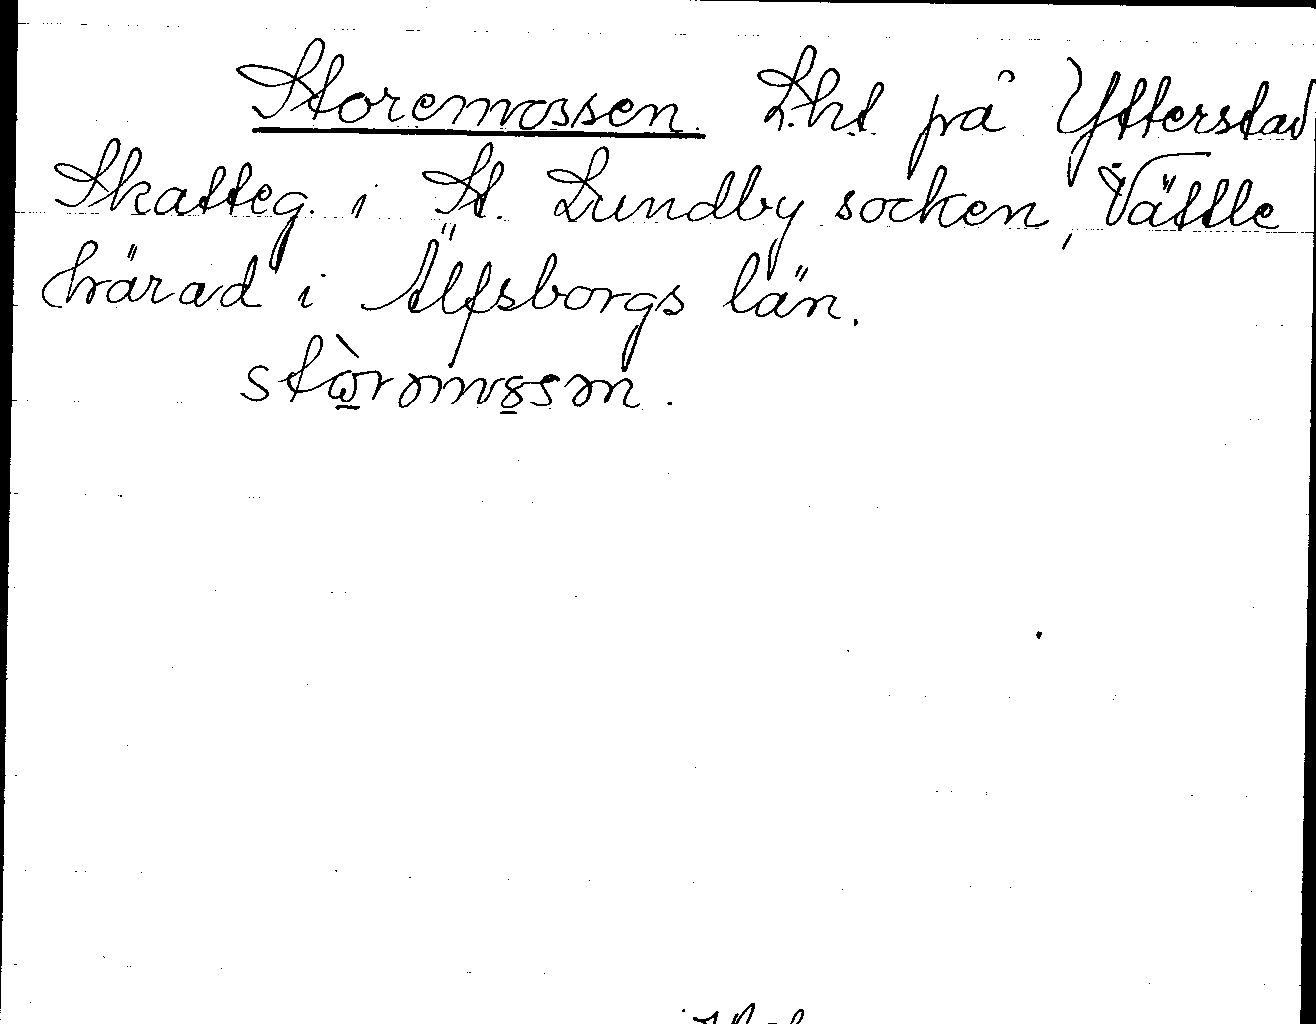 Storemossen. Lht på Ytterstad
Skatteg. i St. Lundby socken, Vättle
härad i Älfsborgs län.